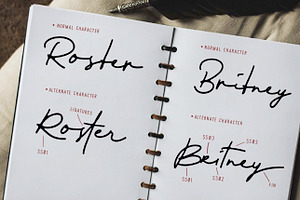 NORMAL CHARACTER
Roster
ALTERNATE CHARACTER
LIGATURES
Roster
SS01
NORMAL CHARACTER
Britney
ALTERNATE CHARACTER
SS03
SS03
Britney
SS01
SS02
FIN